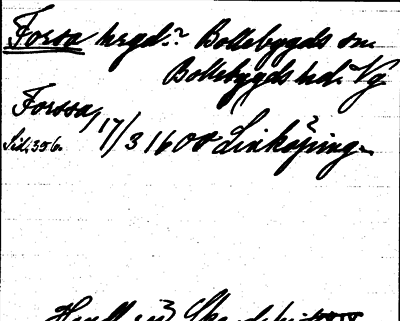 Forsa hrgd.? Bollebygds sn
Bollebygds hd. Vg
Forssa, 17/3 1600 Linköping.
Sid. 356.